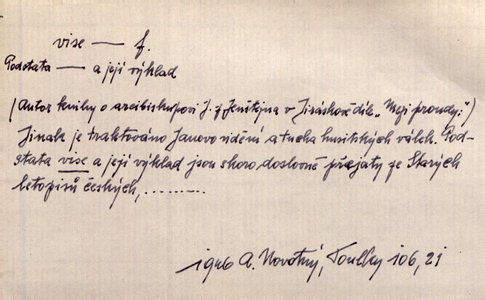 vise — f.
Podstata — a její výklad
(Autor knihy o arcibiskupovi J. z Jenštejna v Jiráskově díle „Mezi proudy“.)
Jinak je traktováno Janovo vidění a tucha husitských válek. Pod-
stata vise a její výklad jsou skoro doslovně přejaty ze Starých
letopisů českých, .........
1946 A. Novotný, Toulky 106, 21